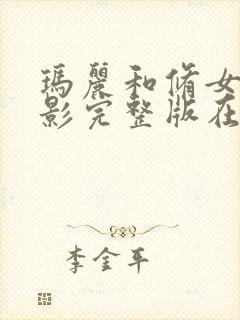 瑪麗和脩女
影完整版在
李金平